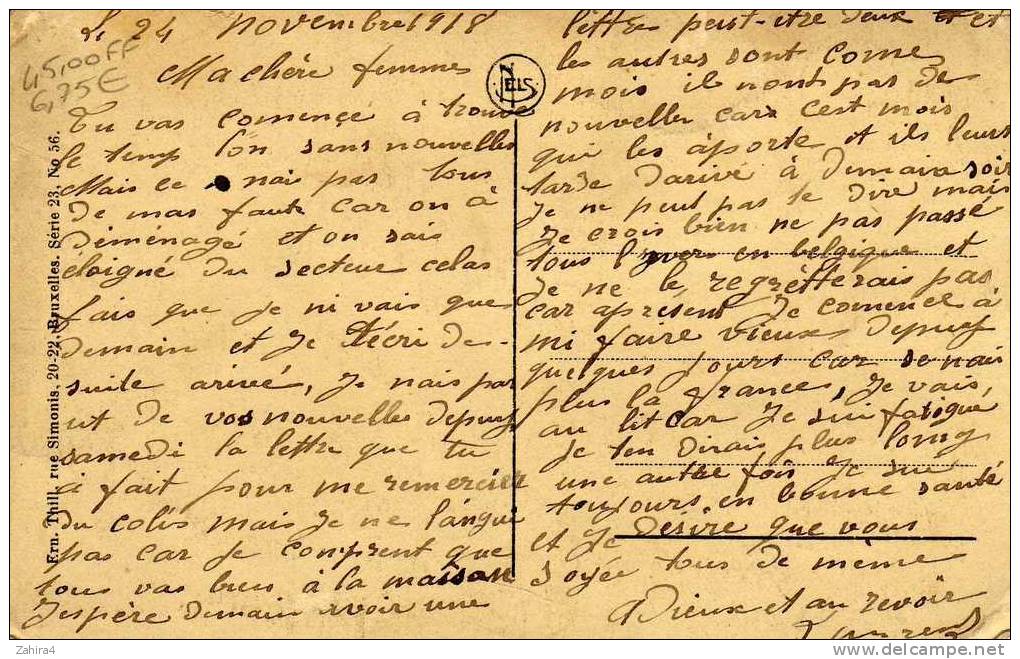 Le 24 novembre 1918
45,00FF
6,75€
Ma chère femme
Tu vas comencé à trouve
le temp lon sans nouvelles
Mais ce nai pas tous
de mas faute car on à
déménage et on sais
éloigné du secteur celas
fais que je ni vais que
demain et je técri de-
suite arivé, je nais pas
ut de vos nouvelles depuy
samedi la lettre que tu
à fait pour me remercier
du colis mais je ne langui
pas car je comprent que
tous vas bien à la maison
Jespère demain avoir une
lettre peut-être deux et
les autres sont come
mois il nont pas de
nouvelles car cest mois
qui les àporte et ils leurs
tarde darivé à demain soir
je ne peut pas te dire mais
je crois bien ne pas passé
tous lyver en belgique et
je ne le regrètterais pas
car àprésent je comence à
mi faire vieux depuy
quelques jours car se nais
plus la france, je vais,
au lit car je sui fatigué
je ten dirais plus long
une autre fois je sui
toujours en bonne santé
et je désire que vous
soyée tous de même
Adieux et au revoir
ELS
Ern. Thill, rue Simonis, 20-22, Bruxelles. Série 23, No 56.
Zahira4
delcampe.net